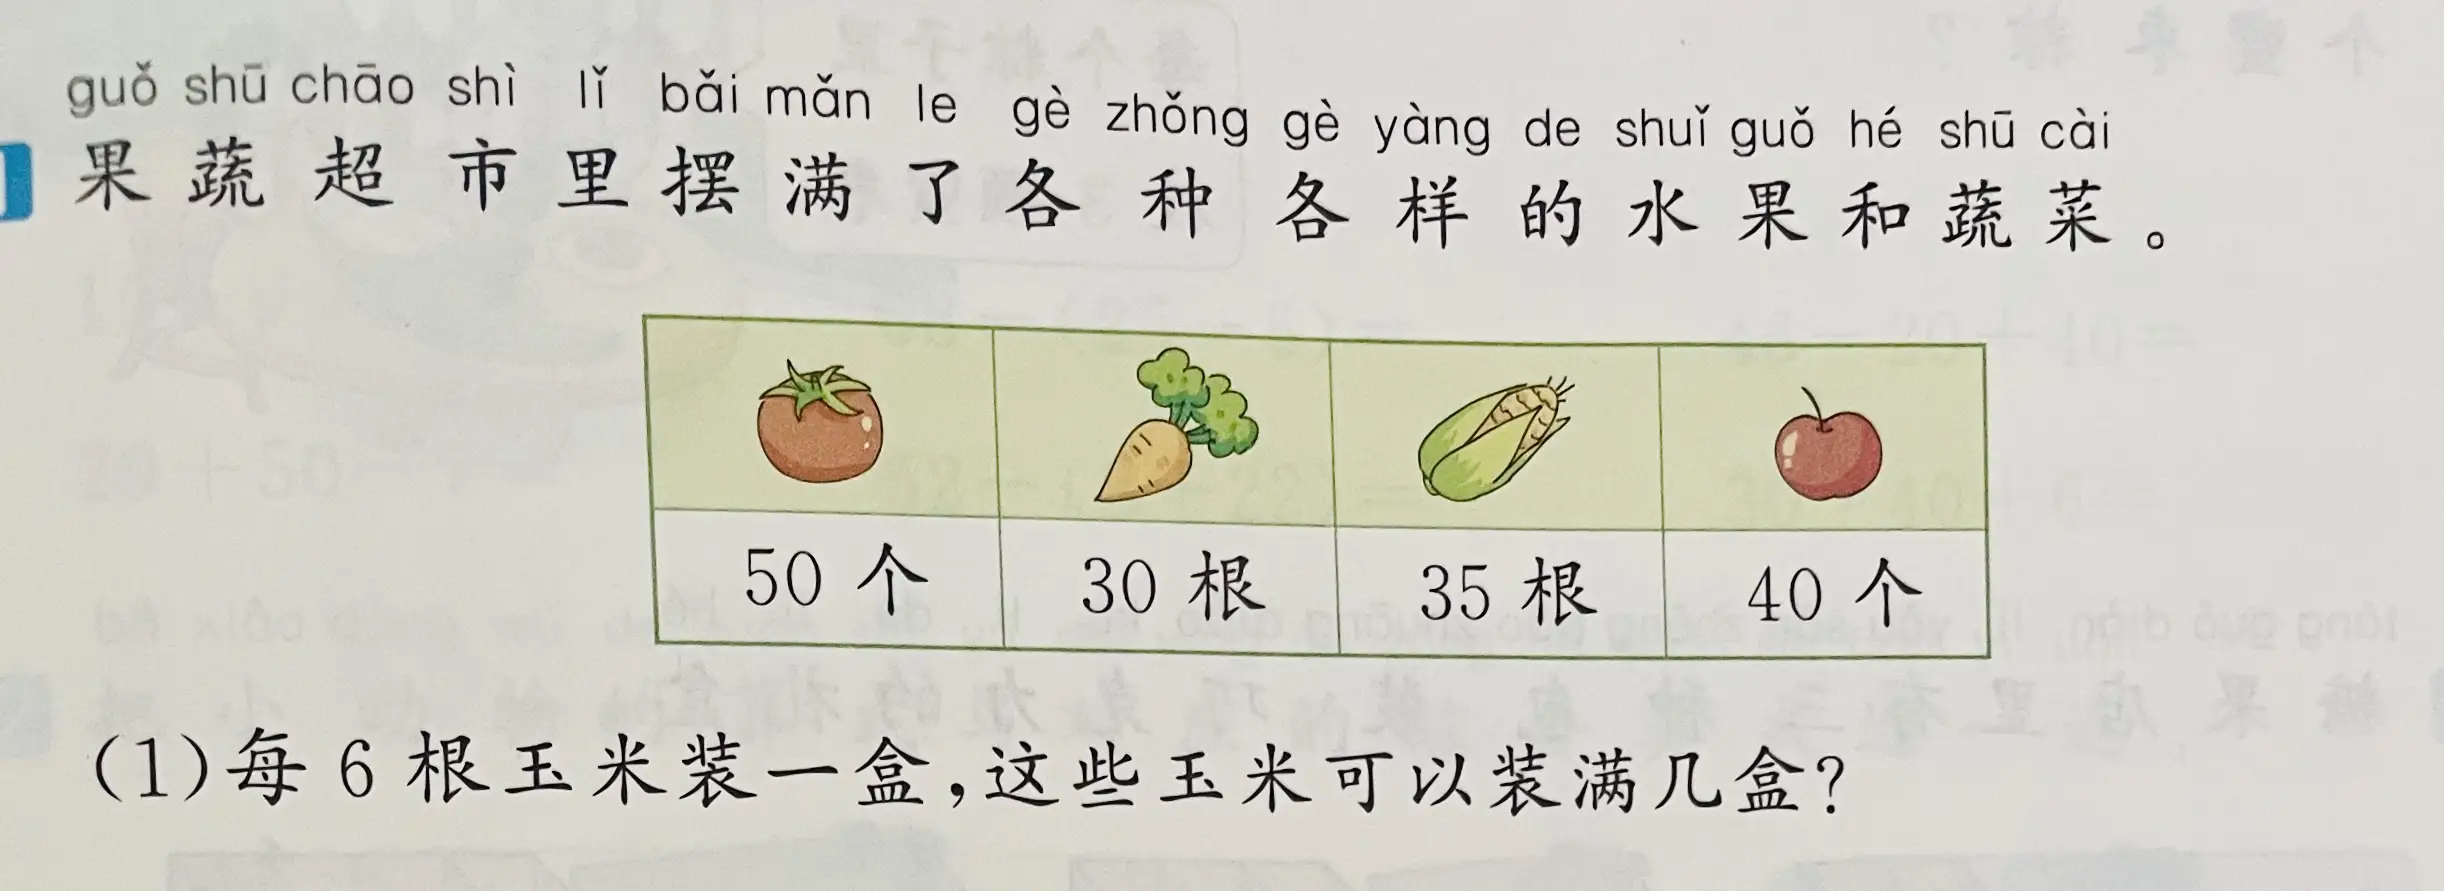 guǒ shū chāo shì lǐ bǎi mǎn le gè zhǒng gè yàng de shuǐ guǒ hé shū cài
果蔬超市里摆满了各种各样的水果和蔬菜。
50 个 30 根 35 根 40 个
(1)每 6 根玉米装一盒,这些玉米可以装满几盒?